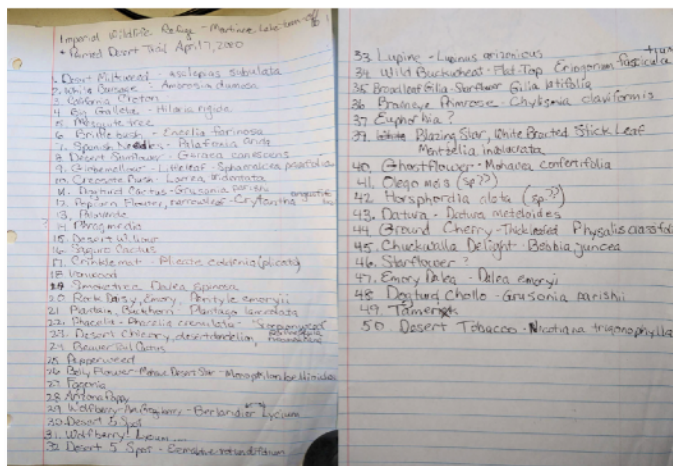 Imperial Wildlife Refuge - Martinez Lake turn-off
+ Painted Desert Trail April 7, 2020
1. Desert Milkweed - Asclepias subulata
2. White Bursage - Ambrosia dumosa
3. California Croton
4. Big Galleta - Hilaria rigida
5. Mesquite tree
6. Brittlebush - Encelia farinosa
7. Spanish Needles - Palafoxia arida
8. Desert Sunflower - Geraea canescens
9. Globemallow - Littleleaf - Sphaeralcea
10. Creosote Bush - Larrea tridentata
11. Dogturd Cactus - Grusonia parishii
12. Popcorn Flower, narrowleaf - Cryptantha
13. Paloverde
14.
15. Desert Willow
16. Saguaro Cactus
17. Crinklemat - (plicata)
18 Ironwood
19 Smoketree Dalea spinosa
20 Rock Daisy, Emory, Perityle emoryii
21 Plantain, Buckhorn Plantago lanceolata
22. Phacelia - Phacelia crenulata -
23. Desert Chicory, desert dandelion,
24. Beaver Tail Cactus
25. Pepperweed
26 Belly Flower - Mohave Desert Star -
27 Fagonia
28 Arizona Poppy
29 Wolfberry - - Berlandier Lycium
30. Desert 5 Spot
31. Wolfberry? Lycium
32. Desert 5 Spot - Eremalche rotundifolium
33. Lupine - Lupinus arizonicus
34. Wild Buckwheat - Flat-Top Eriogonum
35 Broadleaf Gilia - Starflower Gilia latifolia
36 Browneye Primrose - Chylismia claviformis
37 Euphorbia ?
39. Blazing Star, White Bracted Stick Leaf
Mentzelia involucrata
40. Ghostflower - Mohavea confertifolia
41. (sp??)
42 Horsphordia alata (sp.??)
43. Datura - Datura meteloides
44 Ground Cherry - Thickleafed
45. Chuckwalla Delight - Bebbia juncea
46. Starflower ?
47. Emory Dalea - Dalea emoryi
48 Dogturd Cholla - Grusonia parishii
49.
50. Desert Tobacco - Nicotiana trigonophylla